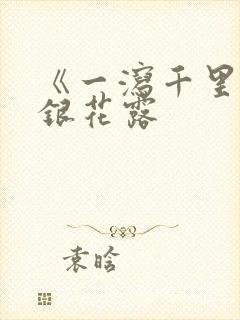 《一瀉千里
銀花露
袁晗